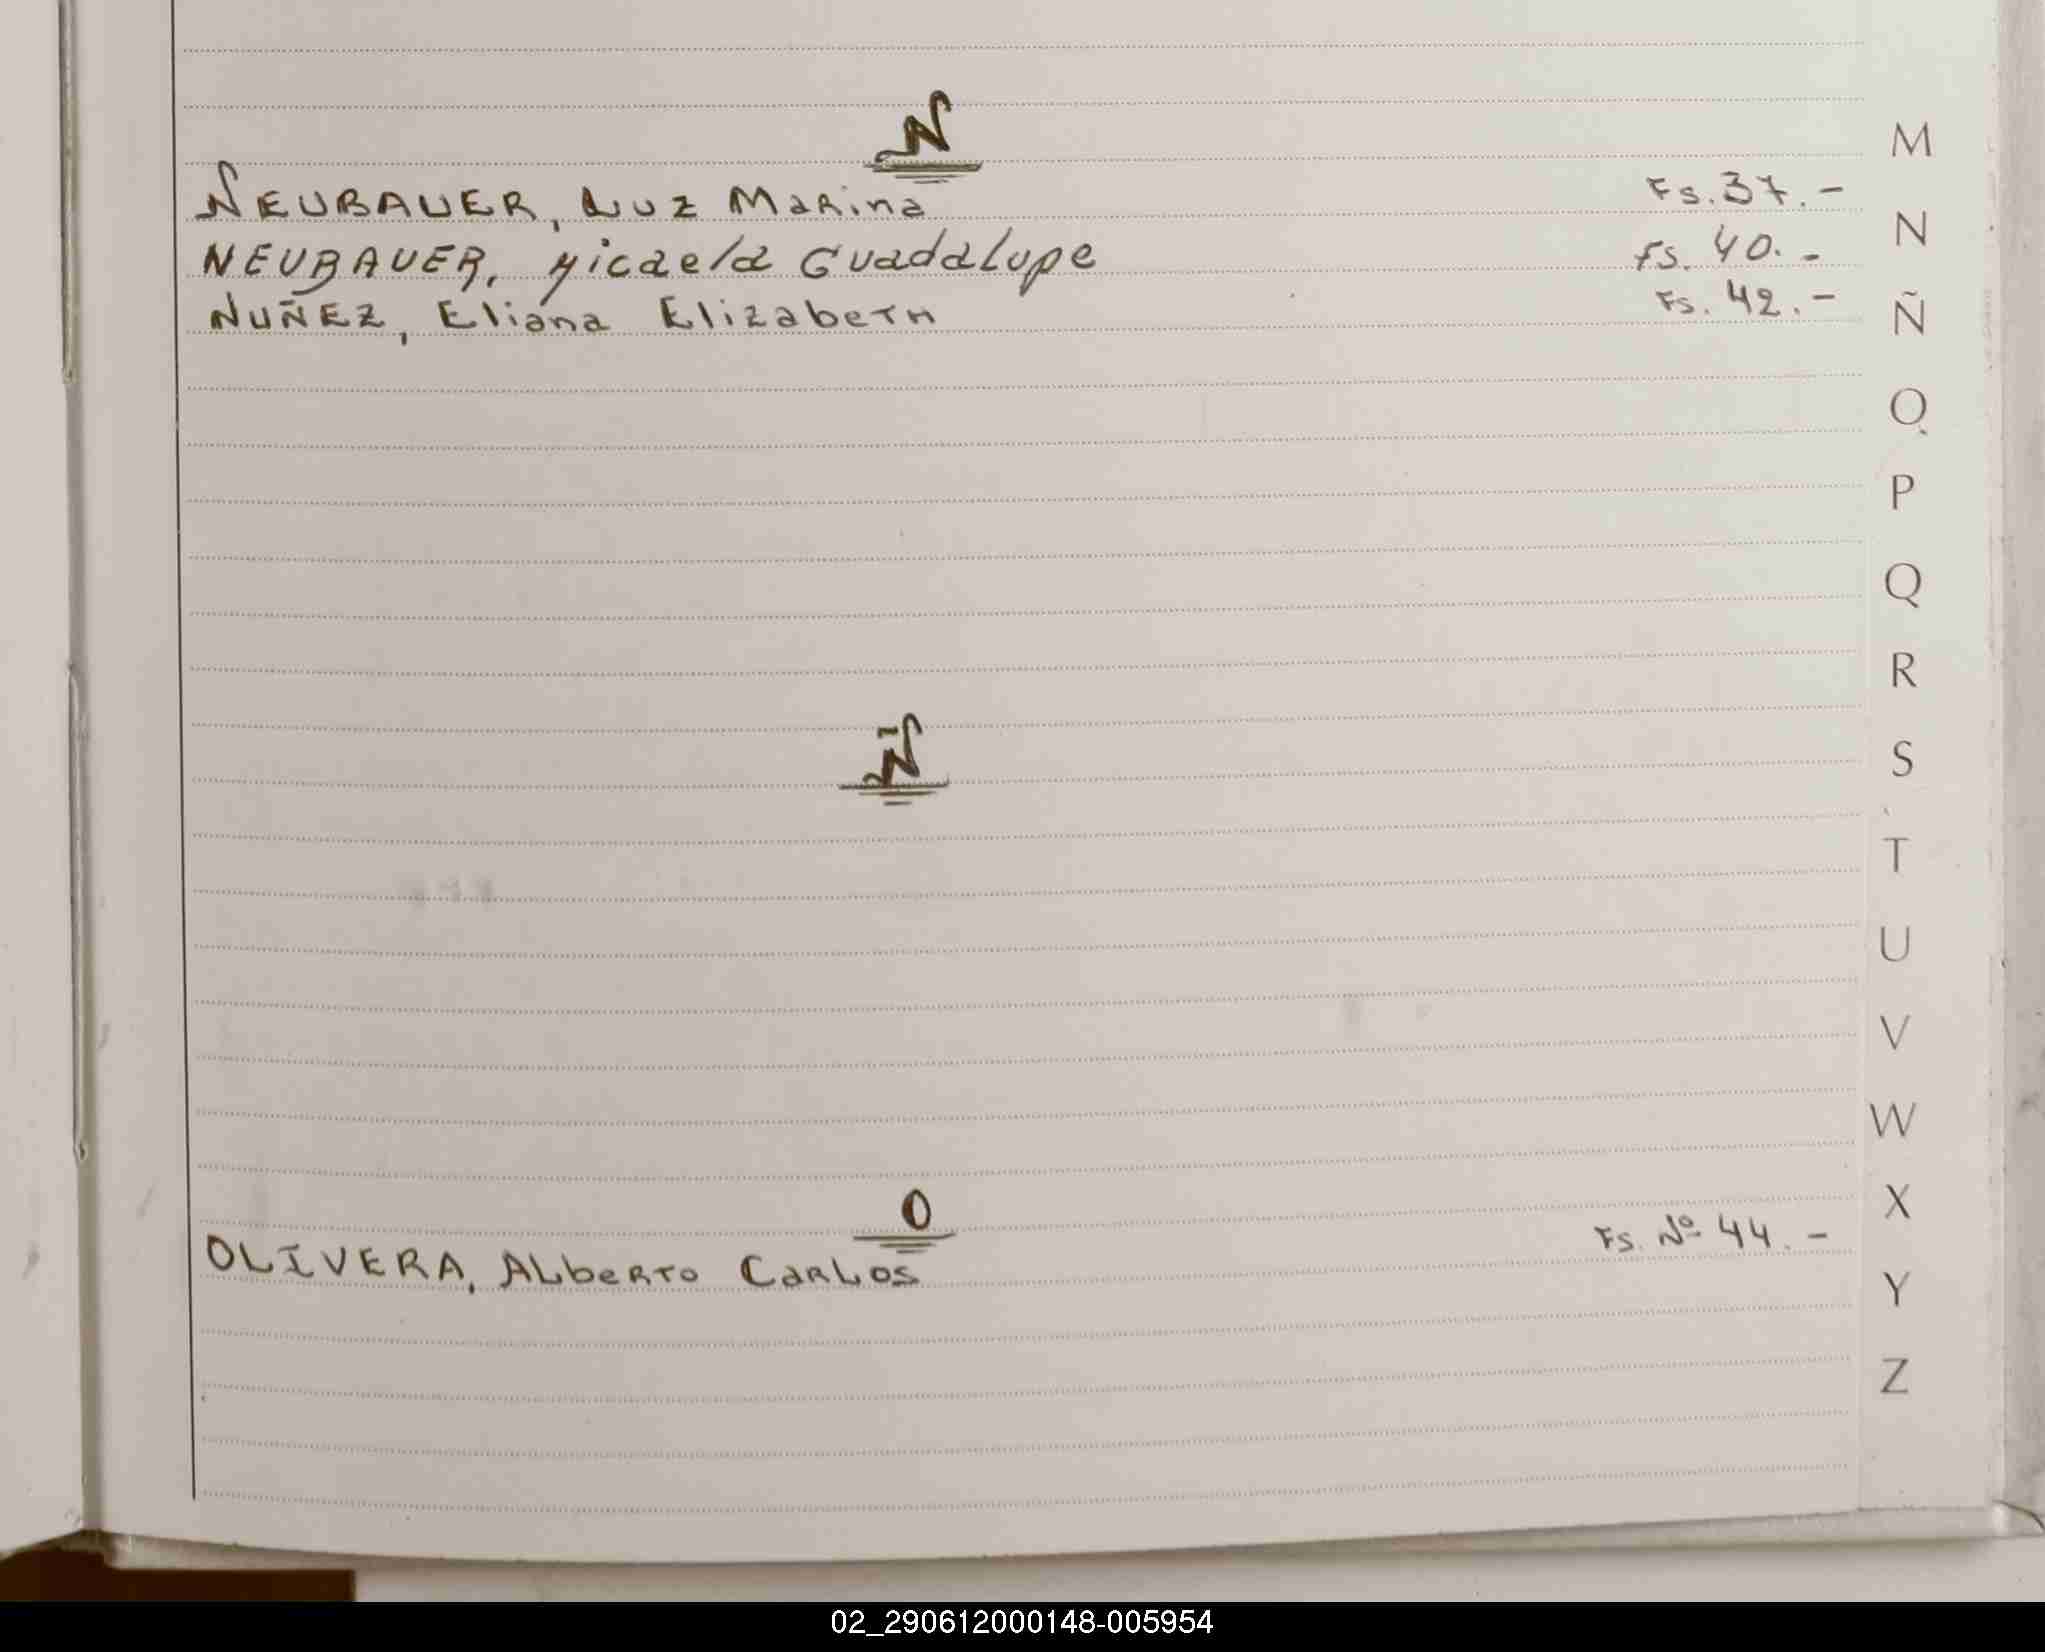 N
NEUBAUER, Luz Marina Fs. 37.-
NEUBAUER, Micaela Guadalupe Fs. 40.-
NUÑEZ, Eliana Elizabeth Fs. 42.-
Ñ
O
OLIVERA, Alberto Carlos Fs. Nº 44.-
M
N
Ñ
O
P
Q
R
S
T
U
V
W
X
Y
Z
02_290612000148-005954